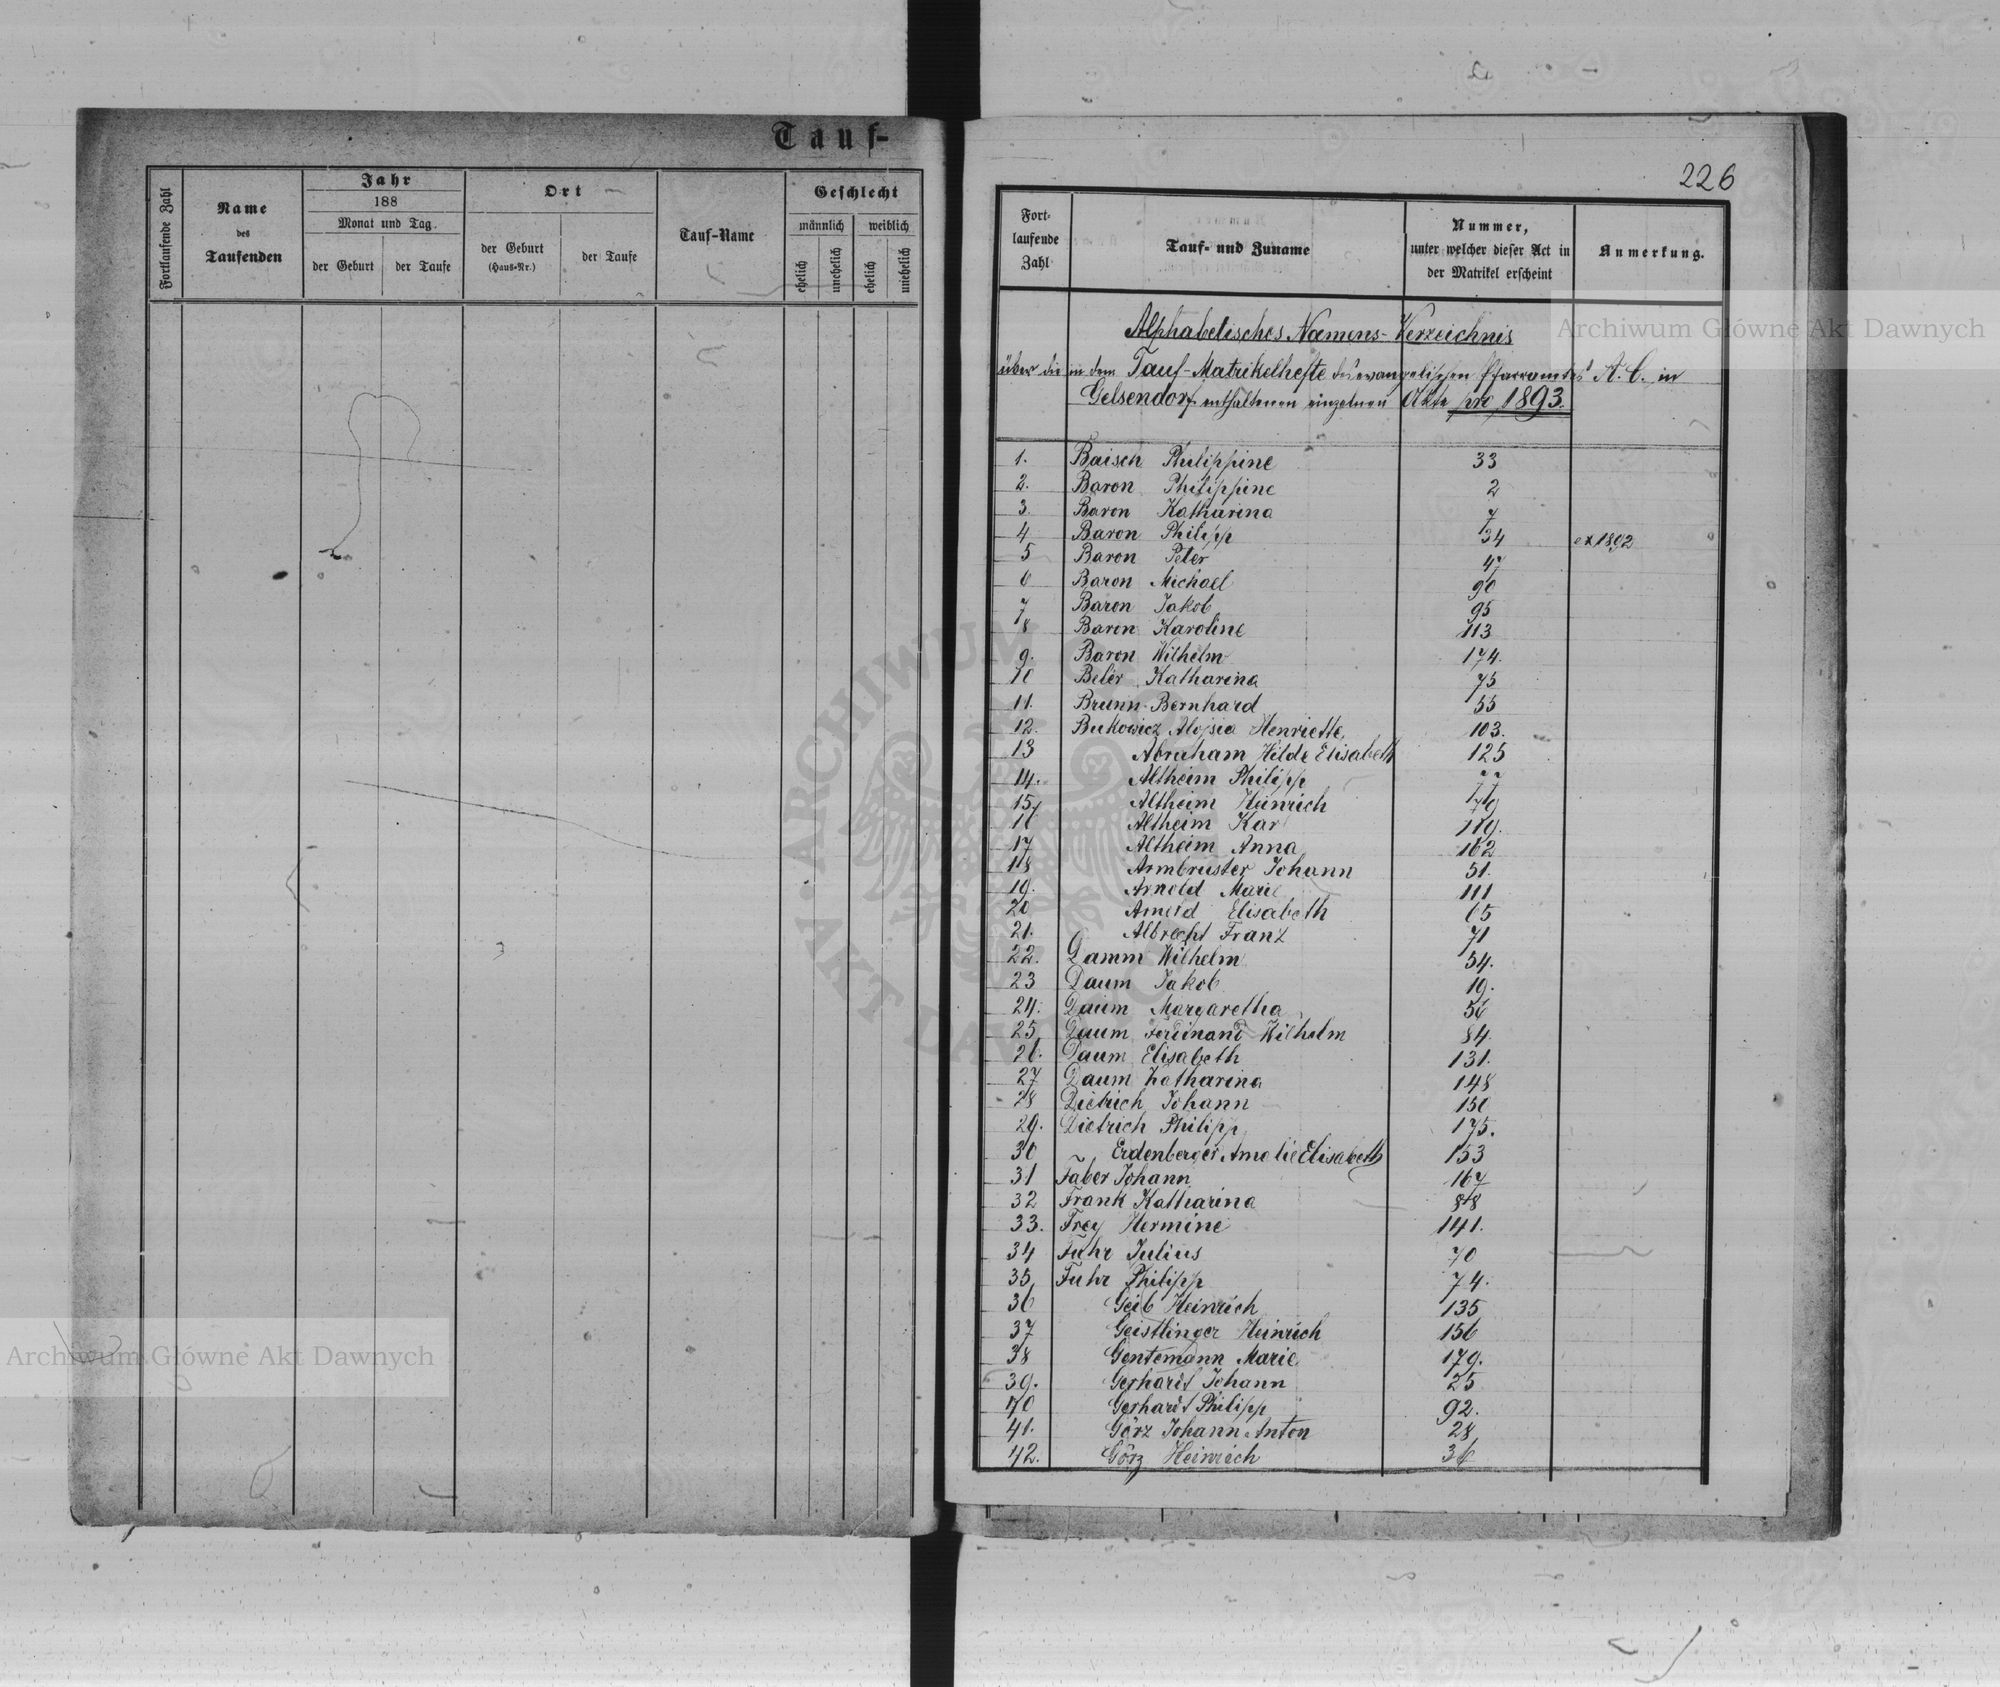 Tauf-
Fortlaufende Zahl
Name
des
Taufenden
Jahr
188
Monat und Tag.
der Geburt
der Taufe
Ort
der Geburt
(Haus-Nr.)
der Taufe
Tauf-Name
Geschlecht
männlich
weiblich
ehelich
unehelich
ehelich
unehelich
226
Fort-
laufende
Zahl
Tauf- und Zuname
Nummer,
unter welcher dieser Act in
der Matrikel erscheint
Anmerkung.
Alphabetisches Namens-Verzeichnis
über die in dem Tauf-Matrikelhefte des evangelischen Pfarramtes A. C. in
Gelsendorf enthaltenen einzelnen Akte pro 1893.
1. Baisch Philippine 33
2. Baron Philippine 2
3. Baron Katharina 7
4 Baron Philipp 34 ex 1892
5 Baron Peter 47
6 Baron Michael 90
7 Baron Jakob 95
8 Baron Karoline 113
9. Baron Wilhelm 174.
10 Beler Katharina 75
11. Brunn Bernhard 55
12. Bukowicz Aloisia Henriette 103.
13 Abraham Hilde Elisabeth 125
14. Altheim Philipp 77
15 Altheim Heinrich 79
16 Altheim Karl 119.
17 Altheim Anna 162
18 Armbruster Johann 51.
19. Arnold Marie 111
20 Arnold Elisabeth 65
21. Albrecht Franz 71
22. Damm Wilhelm 54.
23 Daum Jakob 19.
24. Daum Margaretha 56
25 Daum Ferdinand Wilhelm 84
26. Daum Elisabeth 131.
27 Daum Katharina 148
28 Dietrich Johann 150
29. Dietrich Philipp 175.
30 Erdenberger Amalie Elisabeth 153
31 Faber Johann 167
32 Frank Katharina 88
33. Frey Hermine 141.
34 Fuhr Julius 70
35 Fuhr Philipp 74.
36 Geib Heinrich 135
37 Geistlinger Heinrich 156
38 Gentemann Marie 179.
39. Gerhardt Johann 25
40 Gerhardt Philipp 92.
41. Görz Johann Anton 28
42. Görz Heinrich 36
Archiwum Główne Akt Dawnych
Archiwum Główne Akt Dawnych